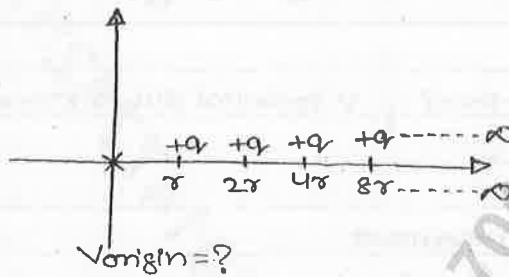 +q +q +q +q ------ ∞
r 2r 4r 8r ------ ∞
Vorigin = ?
70